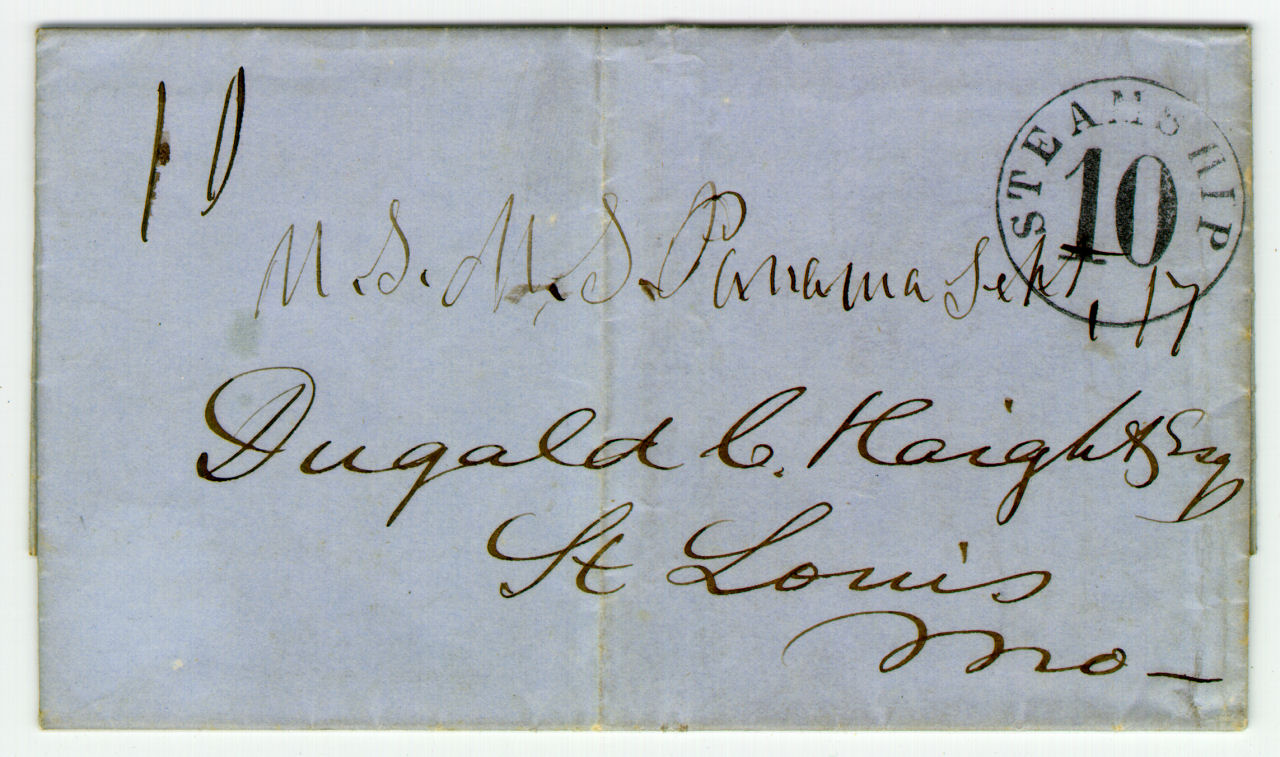 10
STEAMSHIP
10
U.S.M.S. Panama Sept. 17
Dugald C. Haight Esq
St Louis
Mo-